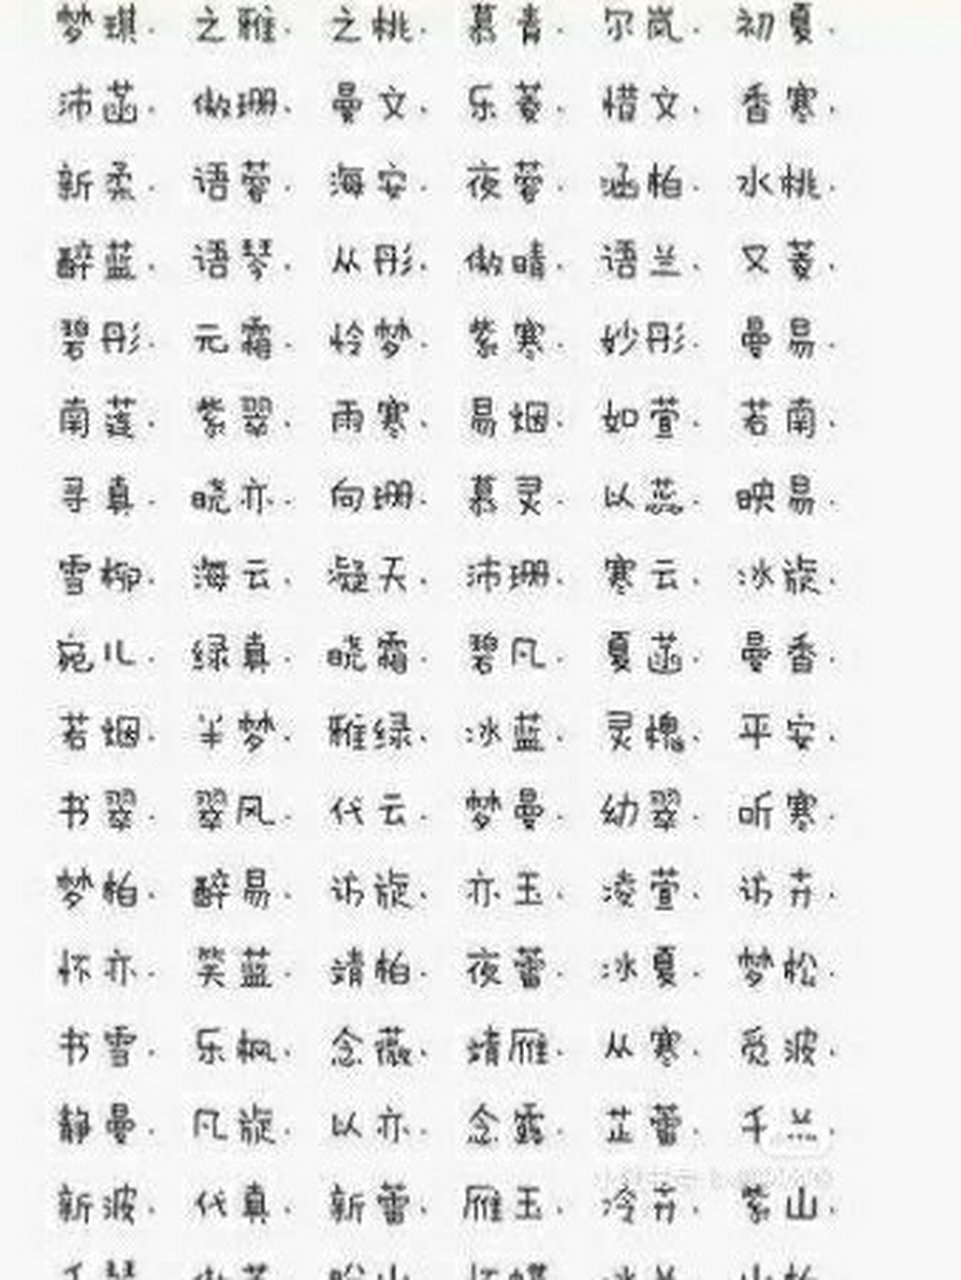 梦琪. 之雅. 之桃. 慕青. 尔岚. 初夏.
沛菡. 傲珊. 曼文. 乐菱. 惜文. 香寒.
新柔. 语蓉. 海安. 夜蓉. 涵柏. 水桃.
醉蓝. 语琴. 从彤. 傲晴. 语兰. 又菱.
碧彤. 元霜. 怜梦. 紫寒. 妙彤. 曼易.
南莲. 紫翠. 雨寒. 易烟. 如萱. 若南.
寻真. 晓亦. 向珊. 慕灵. 以蕊. 映易.
雪柳. 海云. 凝天. 沛珊. 寒云. 冰旋.
宛儿. 绿真. 晓霜. 碧凡. 夏菡. 曼香.
若烟. 半梦. 雅绿. 冰蓝. 灵槐. 平安.
书翠. 翠风. 代云. 梦曼. 幼翠. 听寒.
梦柏. 醉易. 访旋. 亦玉. 凌萱. 访卉.
怀亦. 笑蓝. 靖柏. 夜蕾. 冰夏. 梦松.
书雪. 乐枫. 念薇. 靖雁. 从寒. 觅波.
静曼. 凡旋. 以亦. 念露. 芷蕾. 千兰.
新波. 代真. 新蕾. 雁玉. 冷卉. 紫山.